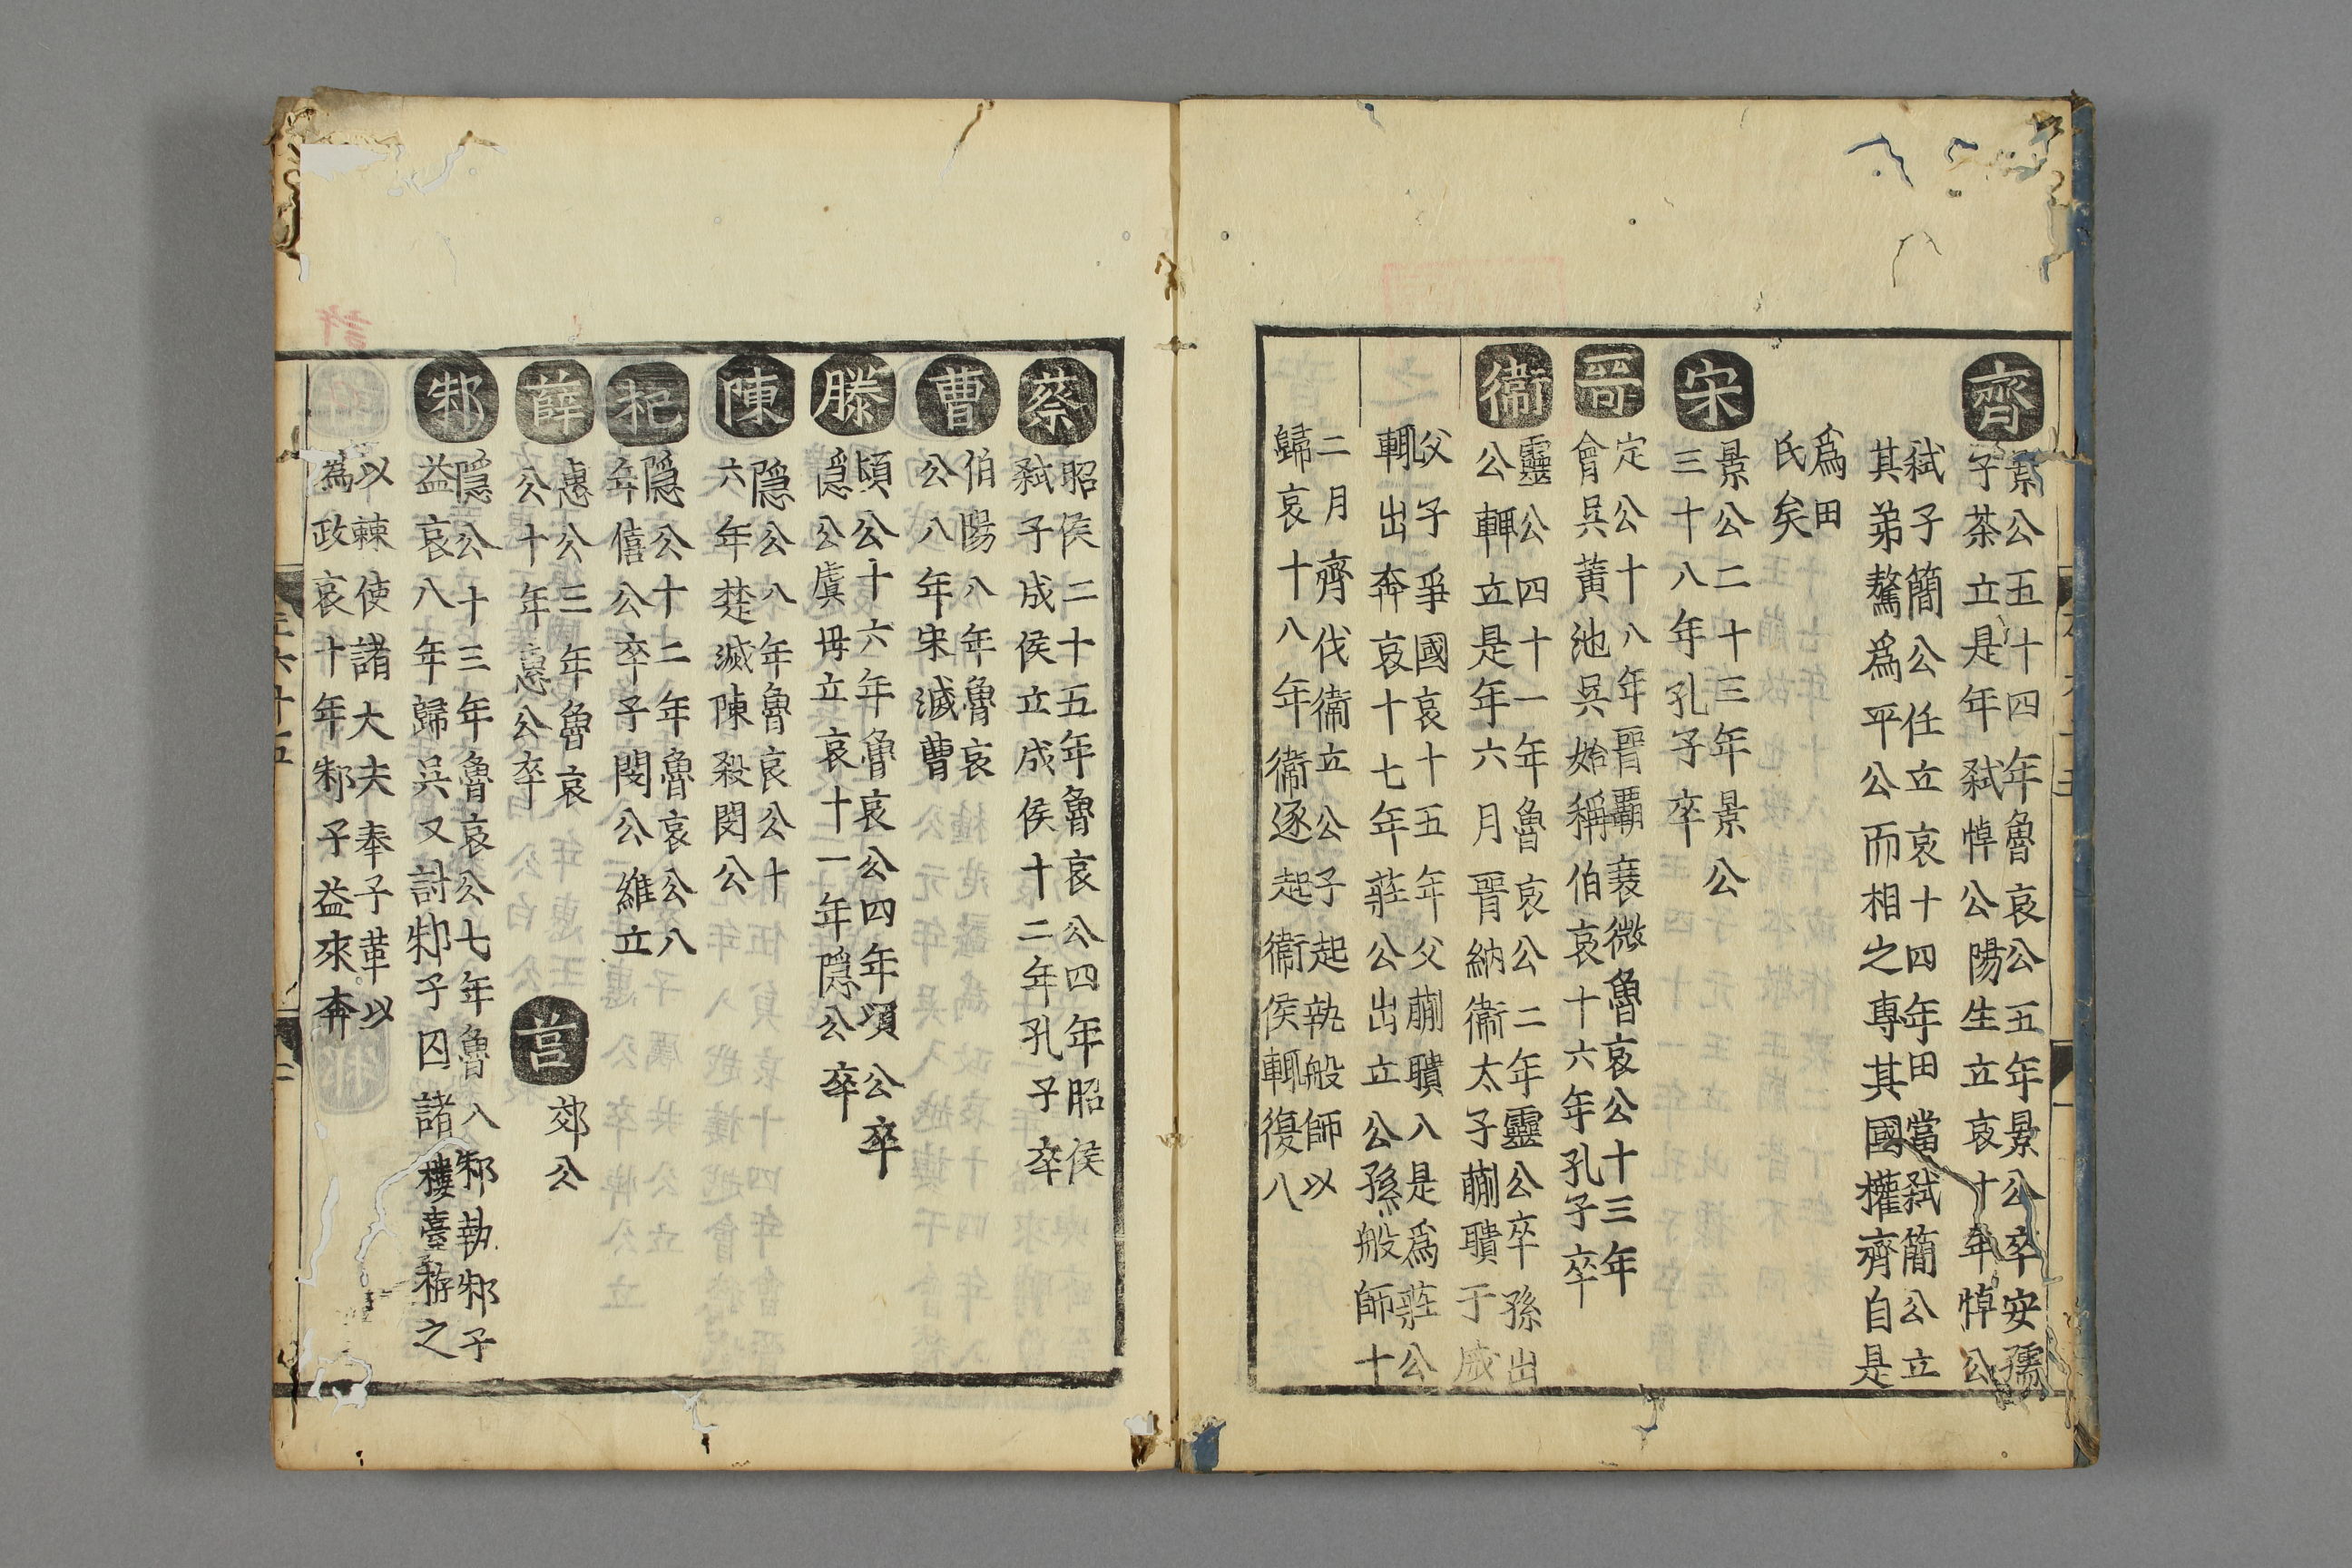 齊
景公五十四年魯哀公五年景公卒安孺
子荼立是年弒悼公陽生立哀十年悼公
弒子簡公任立哀十四年田當弒簡公立
其弟驁爲平公而相之專其國權齊自是
爲田
氏矣
宋
景公二十三年景公
三十八年孔子卒
晉
定公十八年晉霸衰微魯哀公十三年
會吳黃池吳始稱伯哀十六年孔子卒
衞
靈公四十一年魯哀公二年靈公卒孫出
公輒立是年六月晉納衞太子蒯聵于戚
父子爭國哀十五年父蒯聵入是爲莊公
輒出奔哀十七年莊公出立公孫般師十
二月齊伐衞立公子起執般師以
歸哀十八年衞逐起衞侯輒復入
蔡
昭侯二十五年魯哀公四年昭侯
弒子成侯立成侯十二年孔子卒
曹
伯陽八年魯哀
公八年宋滅曹
滕
頃公十六年魯哀公四年頃公卒
隱公虞毋立哀十一年隱公卒
陳
隱公八年魯哀公十
六年楚滅陳殺閔公
杞
隱公十二年魯哀公八
年僖公卒子閔公維立
薛
惠公三年魯哀
公十年惠公卒
莒
郊公
邾
隱公十三年魯哀公七年魯入邾執邾子
益哀八年歸吳又討邾子囚諸樓臺栫之
以棘使諸大夫奉子革以
為政哀十年邾子益來奔
許